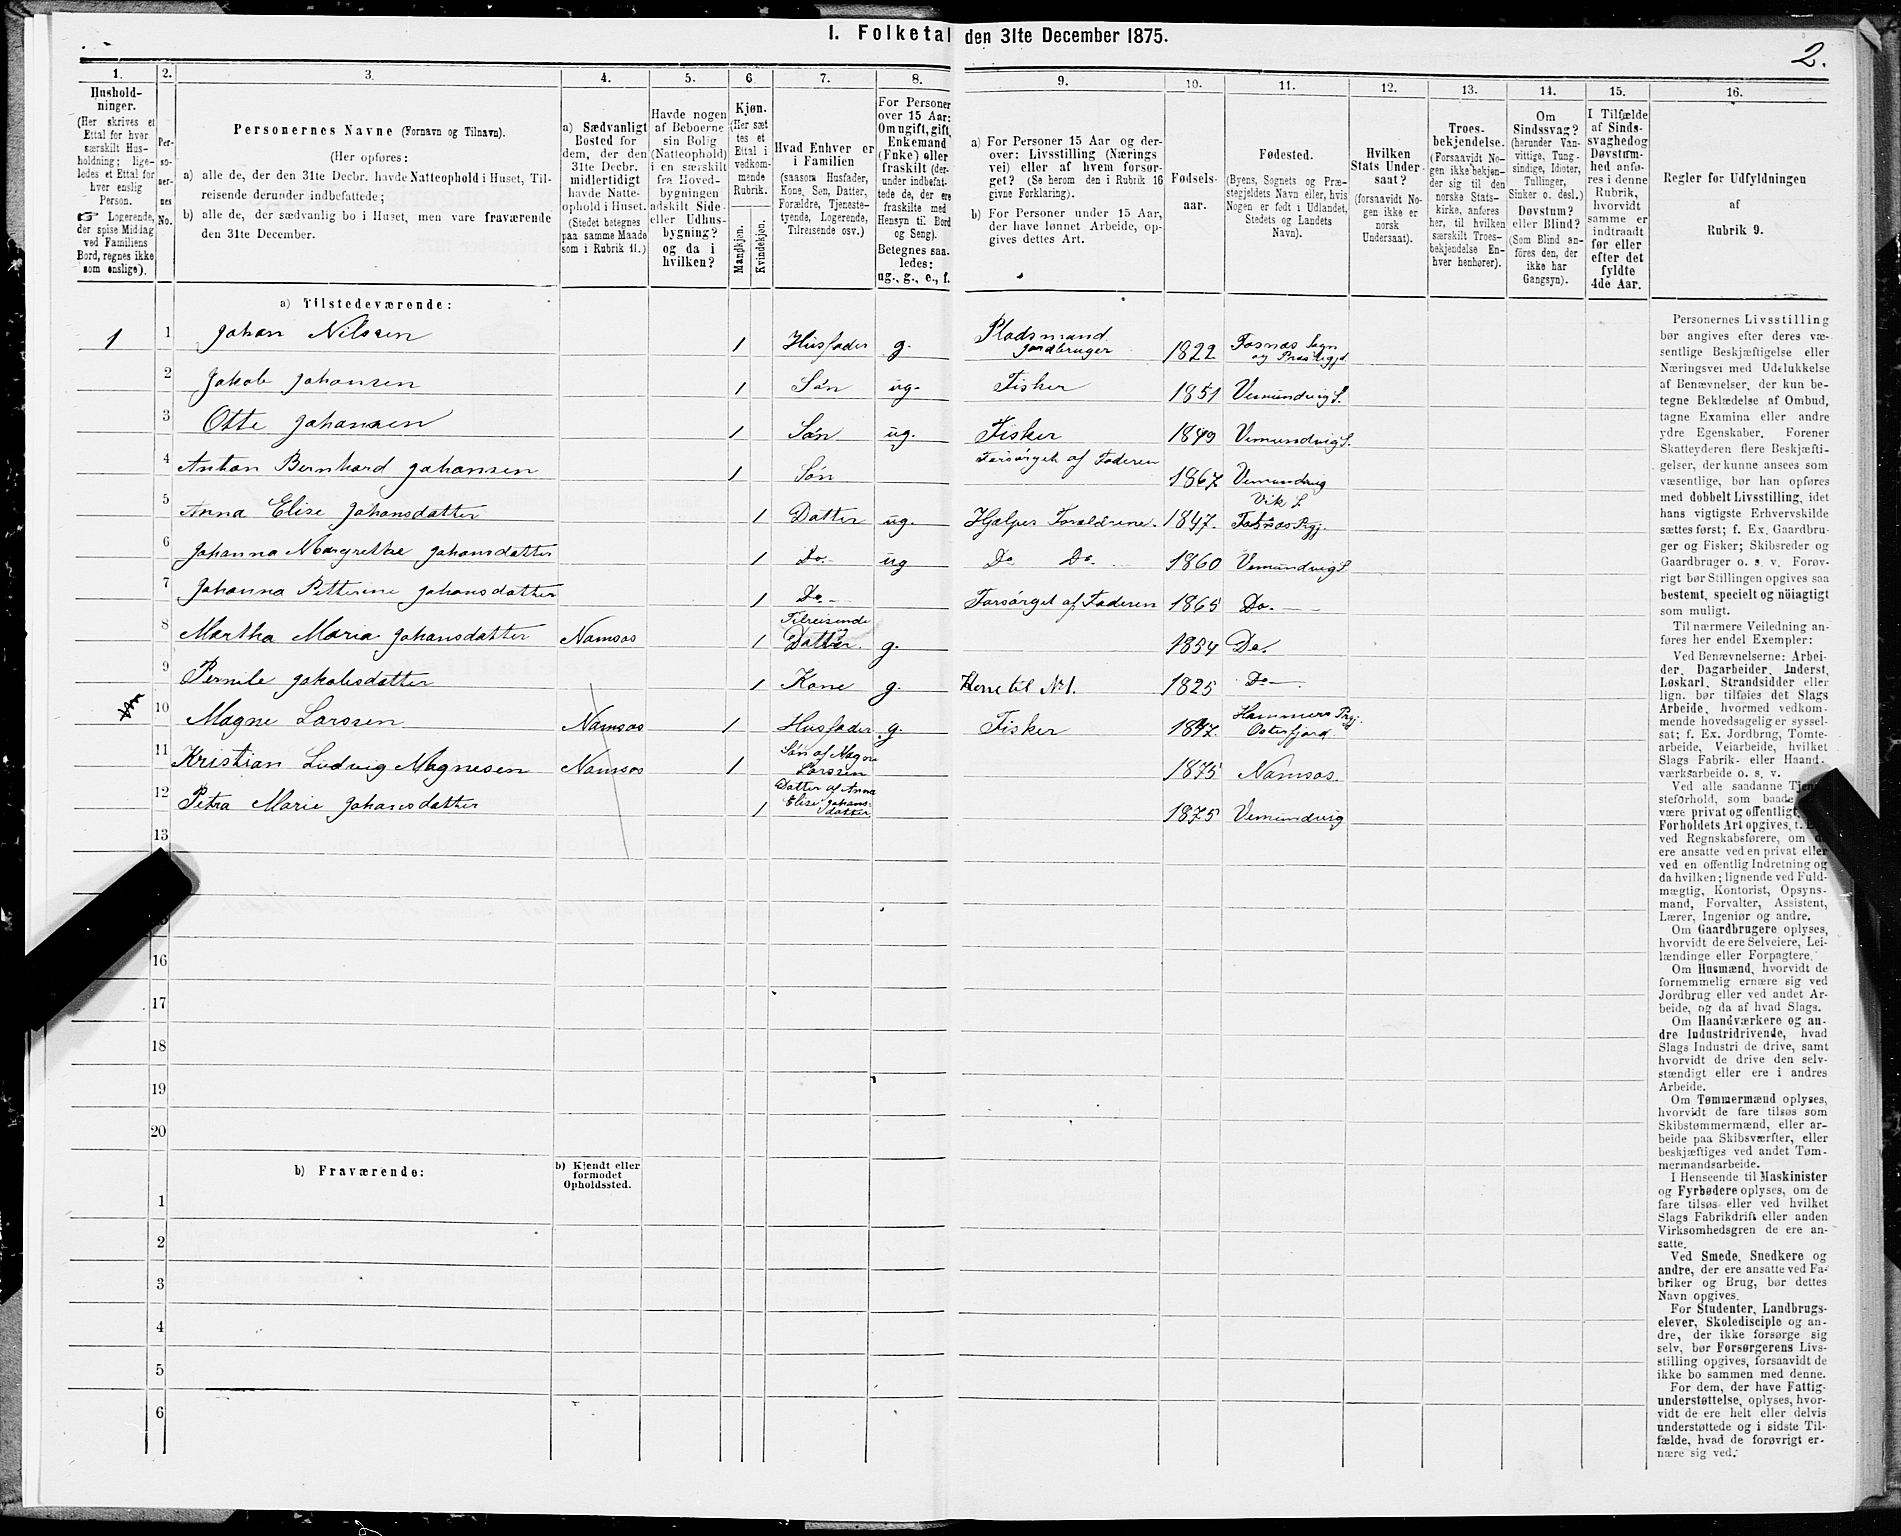 I. Folketal den 31te December 1875.
2.
1.
2.
3.
4.
5.
6
7.
8.
9.
10.
11.
12.
13.
14.
15.
16.
Hushold-
ninger.
(Her skrives et
Ettal for hver
særskilt Hus-
holdning; lige-
ledes et Ettal for
hver enslig
Person.
☞ Logerende,
der spise Middag
ved Familiens
Bord, regnes ikke
som enslige).
Per-
so-
ner-
nes
No.
Personernes Navne (Fornavn og Tilnavn).
(Her opføres:
a) alle de, der den 31te Decbr. havde Natteophold i Huset, Til-
reisende derunder indbefattede;
b) alle de, der sædvanlig bo i Huset, men vare fraværende
den 31te December.
a) Sædvanligt
Bosted for
dem, der den
31te Decbr.
midlertidigt
havde Natte-
ophold i Huset.
(Stedet betegnes
paa samme Maade
som i Rubrik 11.)
Havde nogen
af Beboerne
sin Bolig
(Natteophold)
i en særskilt
fra Hoved-
bygningen
adskilt Side-
eller Udhus-
bygning?
og da i
hvilken?
Kjøn.
(Her sæt
tes et
Ettal i
vedkom-
mende
Rubrik.
Mandkjøn.
Kvindekjøn.
Hvad Enhver er
i Familien
(saasom Husfader,
Kone, Søn, Datter,
Forældre, Tjeneste-
tyende, Logerende,
Tilreisende osv.)
For Personer
over 15 Aar:
Om ugift, gift,
Enkemand
(Enke) eller
fraskilt (der-
under indbefat-
tede de, der ere
fraskilte med
Hensyn til Bord
og Seng).
Betegnes saa-
ledes:
ug., g., e., f.
a) For Personer 15 Aar og der-
over: Livsstilling (Nærings
vei) eller af hvem forsør-
get? (Se herom den i Rubrik 16
givne Forklaring).
b) For Personer under 15 Aar,
der have lønnet Arbeide, op-
gives dettes Art.
Fødsels-
aar.
Fødested.
(Byens, Sognets og Præ-
stegjeldets Navn eller, hvis
Nogen er født i Udlandet,
Stedets og Landets
Navn).
Hvilken
Stats Under-
saat?
(forsaavidt No-
gen ikke er
norsk
Undersaat).
Troes-
bekjendelse.
(Forsaavidt No-
gen ikke bekjen-
der sig til den
norske Stats-
kirke, anføres
her, til hvilken
særskilt Troes-
bekjendelse En-
hver henhører).
Om
Sindssvag?
(herunder Van-
vittige, Tung-
sindige, Idioter,
Tullinger,
Sinker o. desl.)
Døvstum?
eller Blind?
(Som Blind an-
føres den, der
ikke har
Gangsyn).
I Tilfælde
af Sinds-
svaghed og
Døvstum-
hed anfø-
res i denne
Rubrik,
hvorvidt
samme er
indtraadt
før eller
efter det
fyldte
4de Aar.
Regler for Udfyldningen
af
Rubrik 9.
a) Tilstedeværende:
1 1 Johan Nilssen 1 Husfader g. Pladsmand Jordbruger 1822 Fosnæs Sogn og Præstegjd
2 Jakob Johansen 1 Søn ug. Fisker 1851 Vemundvig S.
3 Otte Johansen 1 Søn ug. Fisker 1849 Vemundvig S.
4 Anton Bernhard Johansen 1 Søn Forsørget af Faderen 1867 Vemundvig
5 Anna Elise Johansdatter 1 Datter ug. Hjælper Forældrene. 1847. Vik S. Fosnæs Prgj.
6 Johanna Margrethe Johansdatter 1 Do. ug Do Do. 1860 Vemundvig S.
7 Johanna Petterine Johansdatter 1 Do. Forsørget af Faderen 1865 Do.
8 Martha Maria Johansdatter Namsos 1 Tilreisende Datter. g. 1854 Do.
9 Pernile Jakobsdatter 1 Kone g. Kone til No 1. 1825 Do
10 Magne Larssen Namsos 1 Husfader g. Fisker 1847. Hammers Prgj. Osterfjord
11 Kristian Ludvig Magnesen Namsos 1 Søn af Magne Larssen 1875 Namsos
12 Petra Marie Johansdatter 1 Datter af Anna Elise Johans- datter 1875 Vemundvig
13
16
17
18
19
20
b) Fraværende:
b) Kjendt eller
formodet
Opholdssted.
1
2
3
4
5
6
Personernes Livsstilling
bør angives efter deres væ-
sentlige Beskjæftigelse eller
Næringsvei med Udelukkelse
af Benævnelser, der kun be-
tegne Beklædelse af Ombud,
tagne Examina eller andre
ydre Egenskaber. Forener
Skatteyderen flere Beskjæfti-
gelser, der kunne ansees som
væsentlige, bør han opføres
med dobbelt Livsstilling, idet
hans vigtigste Erhvervskilde
sættes først; f. Ex. Gaardbru-
ger og Fisker; Skibsreder og
Gaardbruger o. s. v. Forøv-
rigt bør Stillingen opgives saa
bestemt, specielt og nöiagtigt
som muligt.
Til nærmere Veiledning an-
føres her endel Exempler:
Ved Benævnelserne: Arbei-
der, Dagarbeider, Inderst,
Løskarl, Strandsidder eller
lign. bør tilføies det Slags
Arbeide, hvormed vedkom-
mende hovedsagelig er syssel-
sat; f. Ex. Jordbrug, Tomte-
arbeide, Veiarbeide, hvilket
Slags Fabrik- eller Haand-
værksarbeide o. s. v.
Ved alle saadanne Tjene-
steforhold, som baade
være privat og offentligt,
Forholdets Art opgives, t.
ved Regnskabsførere, om de
ere ansatte ved en privat eller
ved en offentlig Indretning og
da hvilken; lignende ved Fuld-
mægtig, Kontorist, Opsyns-
mand, Forvalter, Assistent,
Lærer, Ingeniør og andre.
Om Gaardbrugere oplyses,
hvorvidt de ere Selveiere, Lei-
lændinge eller Forpagtere.
Om Husmænd, hvorvidt de
fornemmelig ernære sig ved
Jordbrug eller ved andet Ar-
beide, og da af hvad Slags.
Om Haandværkere og an-
dre Industridrivende, hvad
Slags Industri de drive, samt
hvorvidt de drive den selv-
stændigt eller ere i andres
Arbeide.
Om Tømmermænd oplyses,
hvorvidt de fare tilsøs som
Skibstømmermænd, eller ar-
beide paa Skibsværfter, eller
beskjæftiges ved andet Tøm-
mermandsarbeide.
I Henseende til Maskinister
og Fyrbødere oplyses, om de
fare tilsøs eller ved hvilket
Slags Fabrikdrift eller anden
Virksomhedsgren de ere an-
satte.
Ved Smede, Snedkere og
andre, der ere ansatte ved Fa-
briker og Brug, bør dettes
Navn opgives.
For Studenter, Landbrugs-
elever, Skoledisciple og an-
dre, der ikke forsørge sig
selv, bør Forsørgerens Livs-
stilling opgives, forsaavidt de
ikke bo sammen med denne.
For dem, der have Fattig-
understøttelse, oplyses, hvor-
vidt de ere helt eller delvis
understøttede og i sidste Til-
fælde, hvad de forøvrigt er-
nære sig ved.